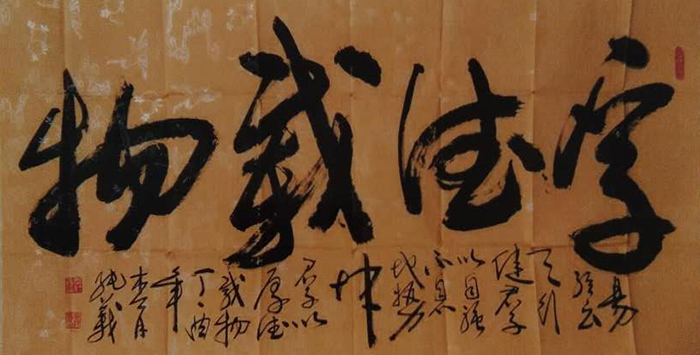 厚德載物
易
经云
天行
健君子
以自强
不息
地势
坤
君子以
厚德
載物
丁酉
年